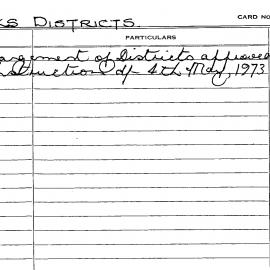 KS DISTRICTS.
CARD NO
PARTICULARS
angement of Districts approved
nstruction of 4th May, 1973